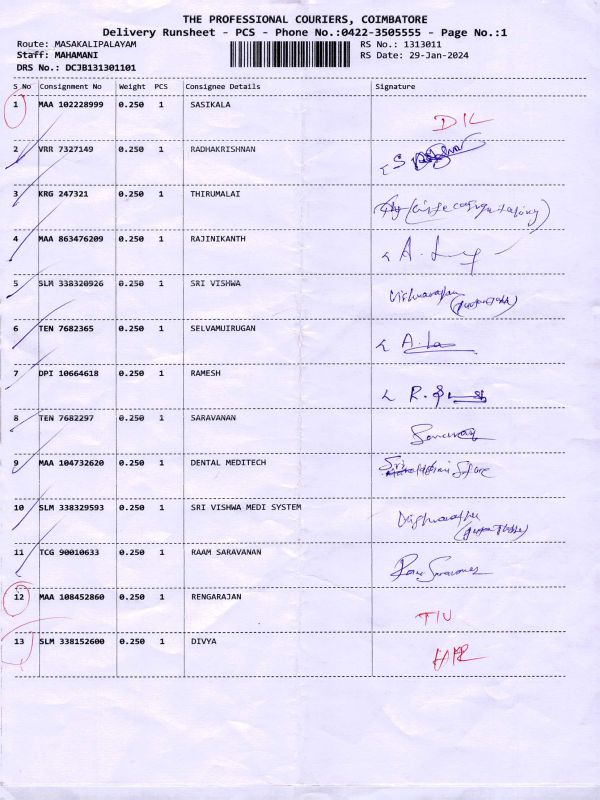 THE PROFESSIONAL COURIERS, COIMBATORE
Delivery Runsheet - PCS - Phone No.:0422-3505555 - Page No.:1
Route: MASAKALIPALAYAM RS No.: 1313011
Staff: MAHAMANI RS Date: 29-Jan-2024
DRS No.: DCJB131301101
S No Consignment No Weight PCS Consignee Details Signature
1 MAA 102228999 0.250 1 SASIKALA
D/L
2 VRR 7327149 0.250 1 RADHAKRISHNAN
3 KRG 247321 0.250 1 THIRUMALAI
4 MAA 863476209 0.250 1 RAJINIKANTH
A.
5 SLM 338320926 0.250 1 SRI VISHWA
6 TEN 7682365 0.250 1 SELVAMUIRUGAN
7 DPI 10664618 0.250 1 RAMESH
R.
8 TEN 7682297 0.250 1 SARAVANAN
9 MAA 104732620 0.250 1 DENTAL MEDITECH
Sri
10 SLM 338329593 0.250 1 SRI VISHWA MEDI SYSTEM
11 TCG 90010633 0.250 1 RAAM SARAVANAN
12 MAA 108452860 0.250 1 RENGARAJAN
13 SLM 338152600 0.250 1 DIVYA